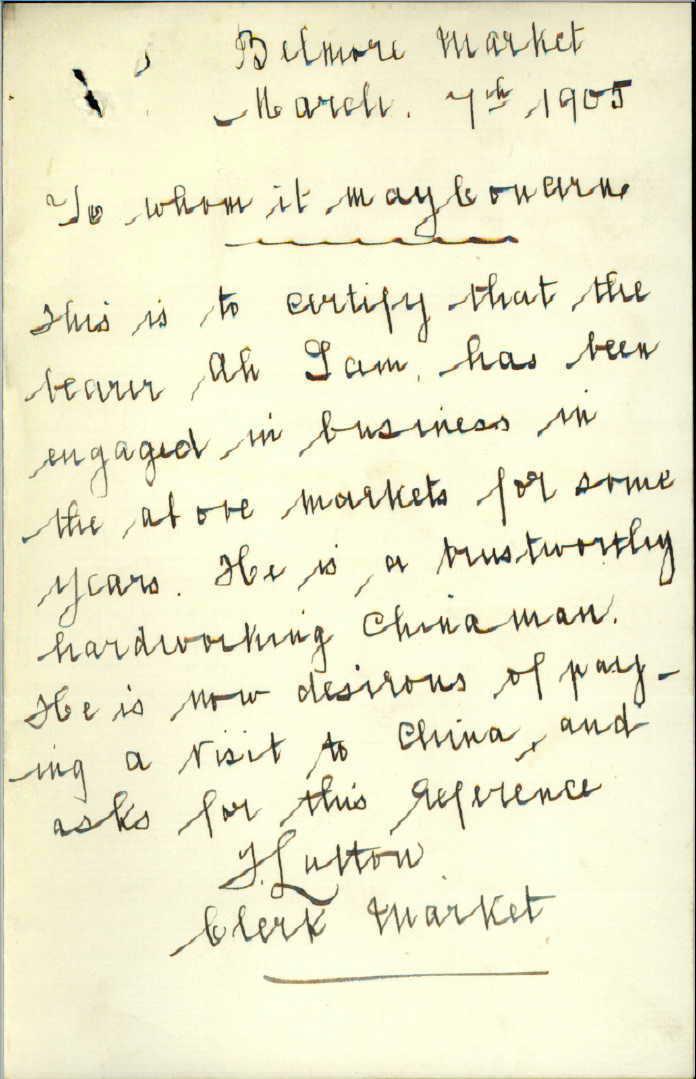 Belmore Market
March. 7th 1905
To whom it may Concern
This is to certify that the
bearer Ah Lam, has been
engaged in business in
the above markets for some
years. He is a trustworthy
hardworking Chinaman.
He is now desirous of pay-
ing a visit to China, and
asks for this reference
J. Lutton
Clerk Market